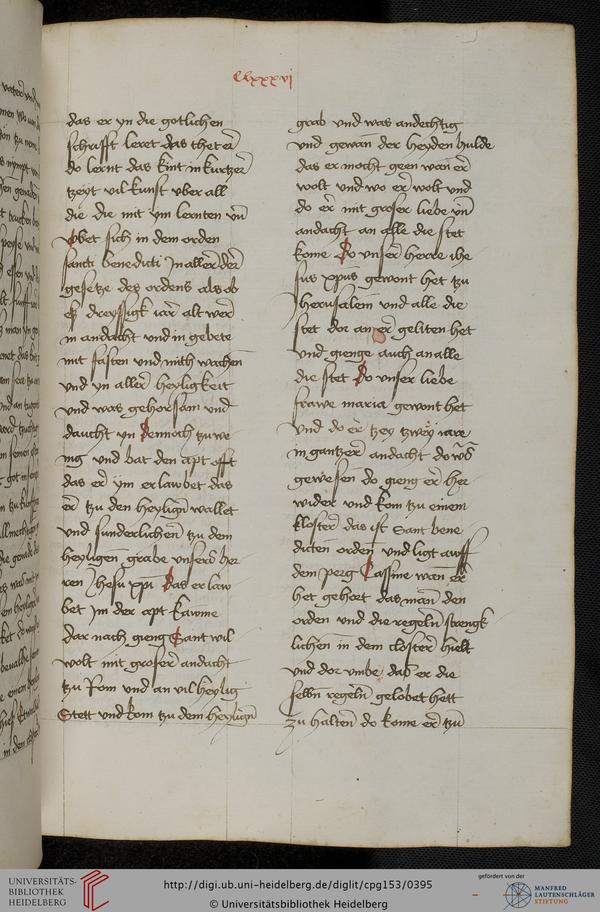 Clxxxvj
das er yn die gotlichen
schrifft leret das thet er
do lernt das kint in kurtzer
tzeyt vil kunst vber all
die die mit ym lernten vn̄
vbet sich in dem orden
sancti benedicti In aller der
gesetze des ordens als ob
er dreyssigk iar alt wer
in andacht vnd in gebete
mit fasten vnd mith wachen
vnd yn aller heyligkeit
vnd was gehorsam vnd
daucht yn dennoch tzu we
nig vnd bat den apt offt
das er ym erlawbet das
er tzu den heylign̄ wallet
vnd sunderlichen tzu dem
heyligen grabe vnsers her
ren Jhesu xpi das erlaw
bet Im der apt kawme
dar nach gieng Sant wil
wolt mit groser andacht
tzu Rom vnd an vil heylig
Stett vnd kom tzu dem heylign̄
grab vnd was andechtig
vnd gewan der heyden hulde
das er mocht geen wan er
wolt vnd wo er wolt vnd
do er mit groser liebe vn̄
andacht an alle die stet
kome Do vnser herre ihe
sus xpus gewont het tzu
Jherusalem vnd alle die
stet dor an er geliten het
vnd gienge auch an alle
die stet Do vnser liebe
frawe maria gewont het
vnd do er tzey tzwey iare
in gantzer andacht do
gewesen do gieng er her
wider vnd kom tzu einem
kloster das ist Sant bene
dicten orden vnd ligt awff
dem perg Cassine wan er
het gehort das man den
orden vnd die regeln strengk
lichen in dem closter hielt
vnd dor vmbe das er die
selbn regeln gelobet hett
zu halten do kome er tzu
UNIVERSITÄTS-
BIBLIOTHEK
HEIDELBERG
http://digi.ub.uni-heidelberg.de/diglit/cpg153/0395
© Universitätsbibliothek Heidelberg
gefördert von der
MANFRED
LAUTENSCHLÄGER
STIFTUNG